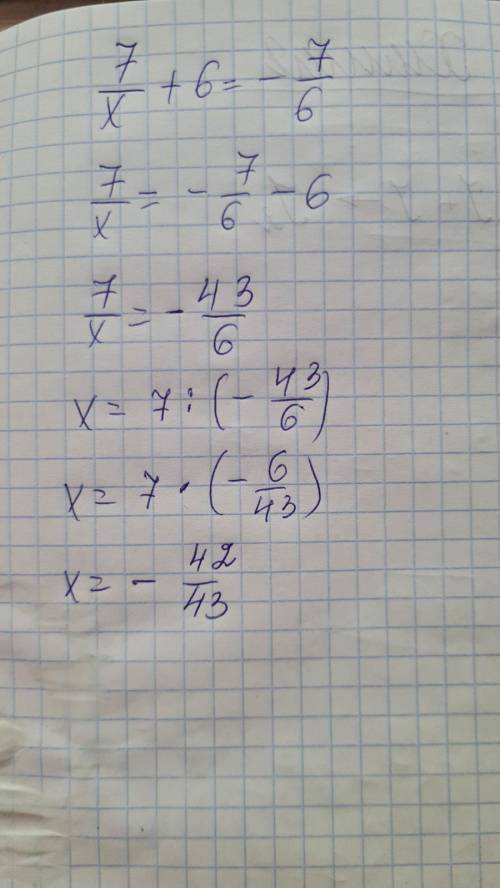 7/x + 6 = - 7/6
7/x = - 7/6 - 6
7/x = - 43/6
x = 7 : (- 43/6)
x = 7 · (- 6/43)
x = - 42/43